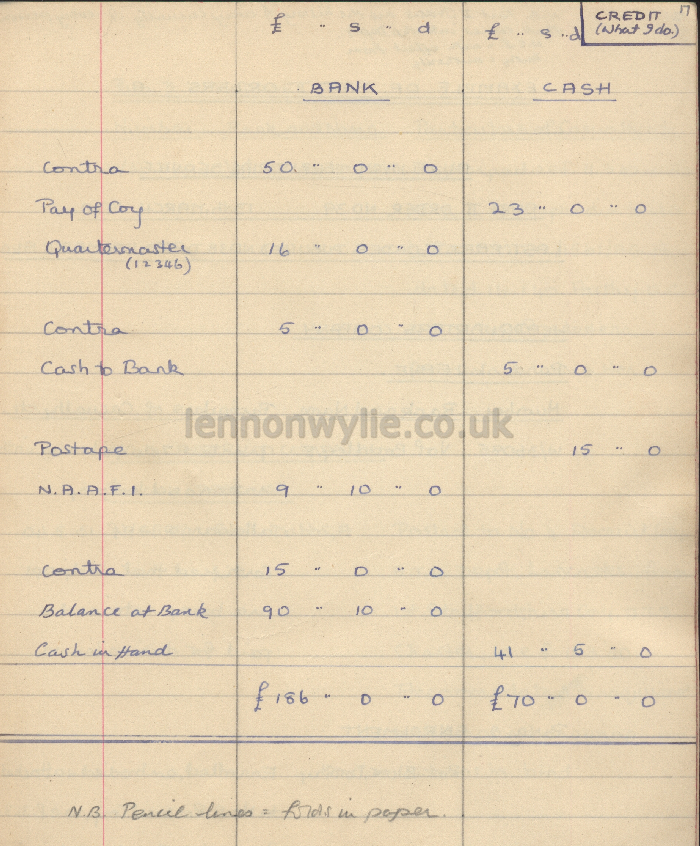 17
CREDIT
(What I do.)
£ " s " d £ " s " d
BANK CASH
Contra 50 " 0 " 0
Pay of Coy 23 " 0 " 0
Quartermaster 16 " 0 " 0
(12346)
Contra 5 " 0 " 0
Cash to Bank 5 " 0 " 0
lennonwylie.co.uk
Postage 15 " 0
N.A.A.F.I. 9 " 10 " 0
Contra 15 " 0 " 0
Balance at Bank 90 " 10 " 0
Cash in Hand 41 " 5 " 0
£186 " 0 " 0 £70 " 0 " 0
N.B. Pencil lines = folds in paper.